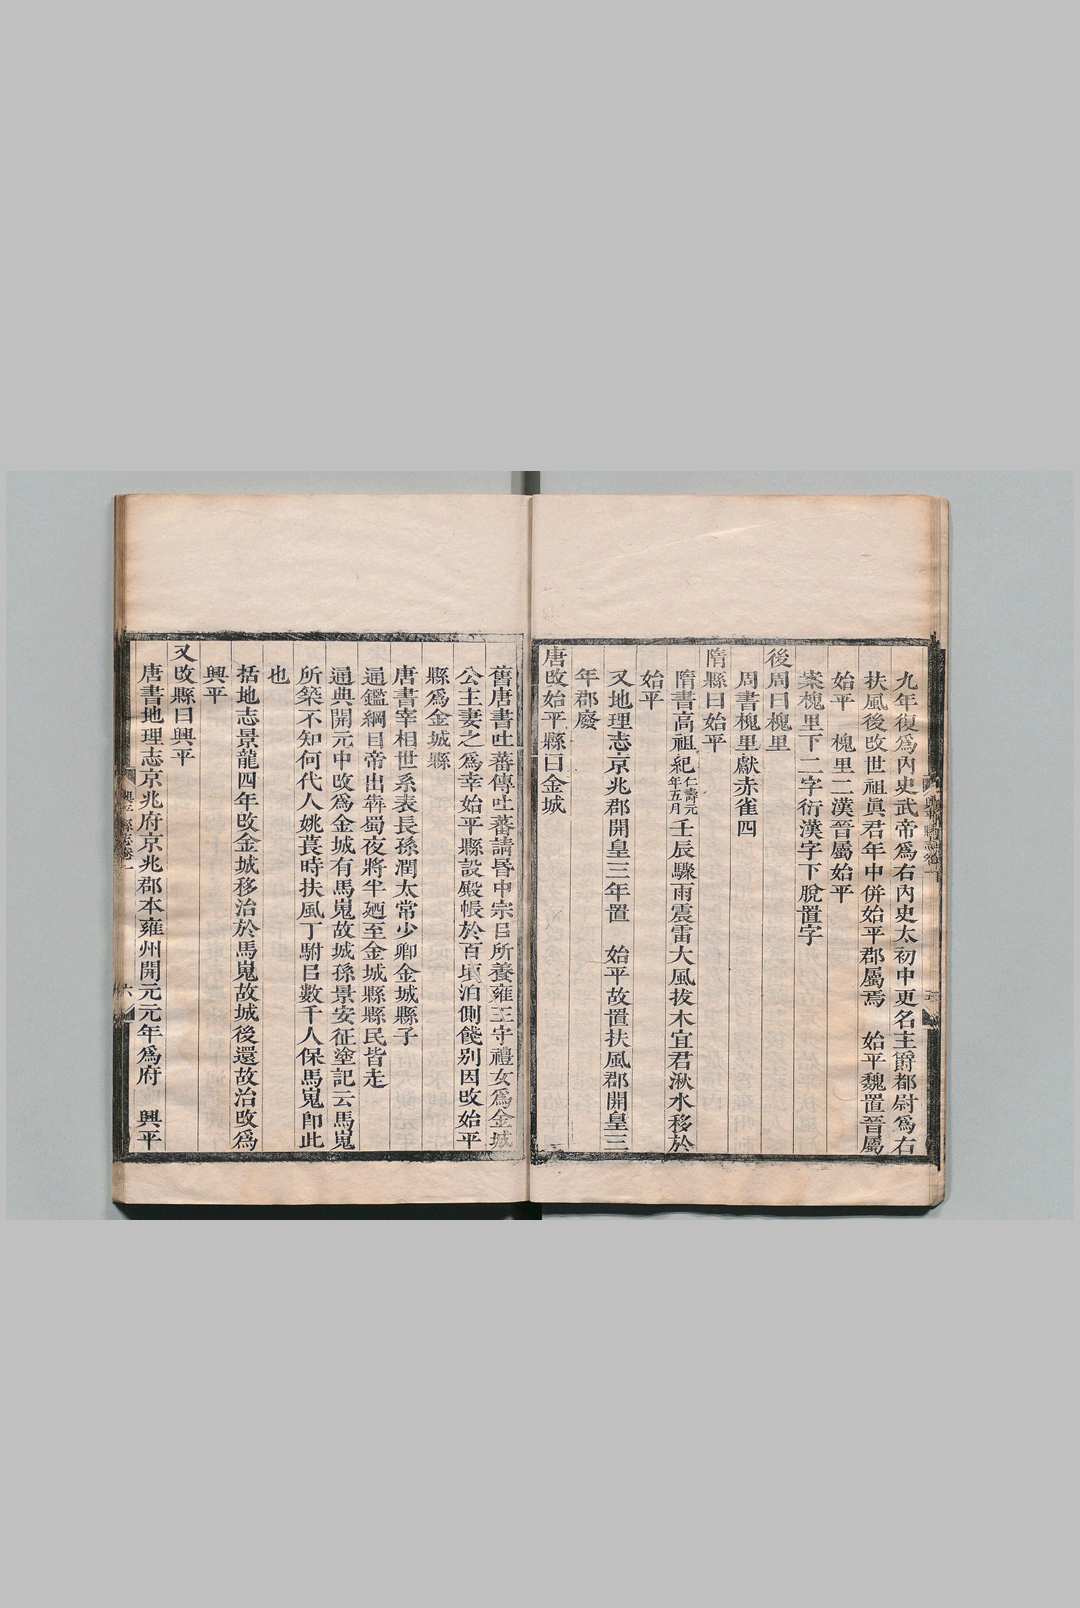 九年復爲內史武帝爲右內史太初中更名主爵都尉爲右
扶風後改世祖眞君年中併始平郡屬焉　始平魏置晉屬
始平　槐里二漢晉屬始平
案槐里下二字衍漢字下脫置字
後周曰槐里
周書槐里獻赤雀四
隋縣曰始平
隋書高祖紀仁壽元年五月壬辰驟雨震雷大風拔木宜君湫水移於
始平
又地理志京兆郡開皇三年置　始平故置扶風郡開皇三
年郡廢
唐改始平縣曰金城
舊唐書吐蕃傳吐蕃請昏中宗㠯所養雍王守禮女爲金城
公主妻之爲幸始平縣設殿帳於百頃泊側餞别因改始平
縣爲金城縣
唐書宰相世系表長孫潤太常少卿金城縣子
通鑑綱目帝出犇蜀夜將半廼至金城縣縣民皆走
通典開元中改爲金城有馬嵬故城孫景安征塗記云馬嵬
所築不知何代人姚萇時扶風丁騈㠯數千人保馬嵬卽此
也
括地志景龍四年改金城移治於馬嵬故城後還故治改爲
興平
又改縣曰興平
唐書地理志京兆府京兆郡本雍州開元元年爲府　興平
興平縣志卷一
六